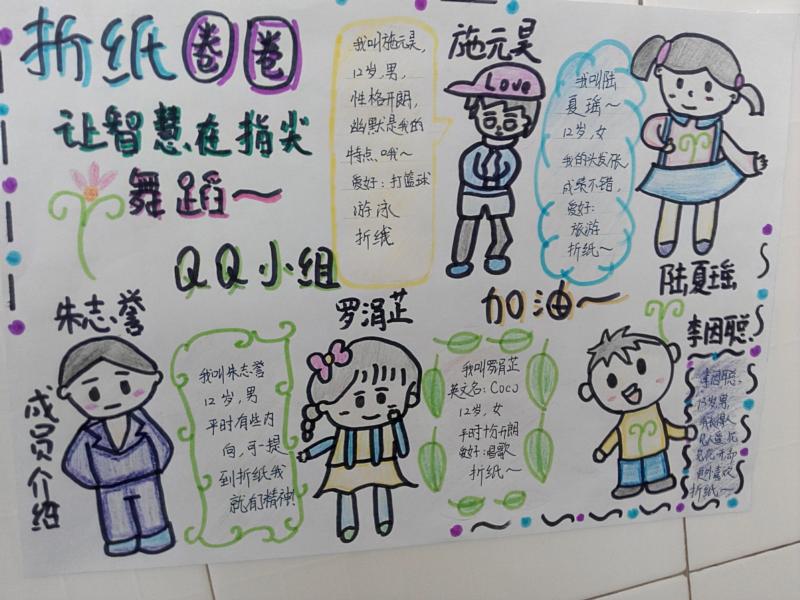 折纸圈圈
让智慧在指尖
舞蹈～
QQ小组
加油～
成员介绍
施元昊
我叫施元昊,
12岁,男,
性格开朗,
幽默是我的
特点哦～
爱好:打篮球
游泳
折纸
Love
陆夏瑶
我叫陆
夏瑶～
12岁,女
我的头发长,
成绩不错,
爱好:
旅游
折纸～
朱志誉
我叫朱志誉
12岁,男
平时有些内
向,可一提
到折纸我
就有精神!
罗涓芷
我叫罗涓芷
英文名:Coco
12岁,女
平时十分开朗
爱好:唱歌
折纸～
李因聪
李因聪,
13岁,男,
喜欢
折纸～